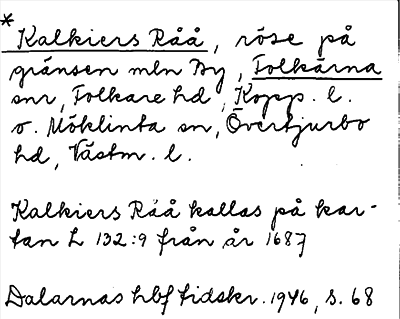 * Kalkiers Råå, röse på
gränsen mln By, Folkärna
snr, Folkare hd, Kopp. l.
o. Möklinta sn, Övertjurbo
hd, Västm. l.
Kalkiers Råå kallas på kar-
tan L 132:9 från år 1687
Dalarnas hbf tidskr. 1946, s. 68